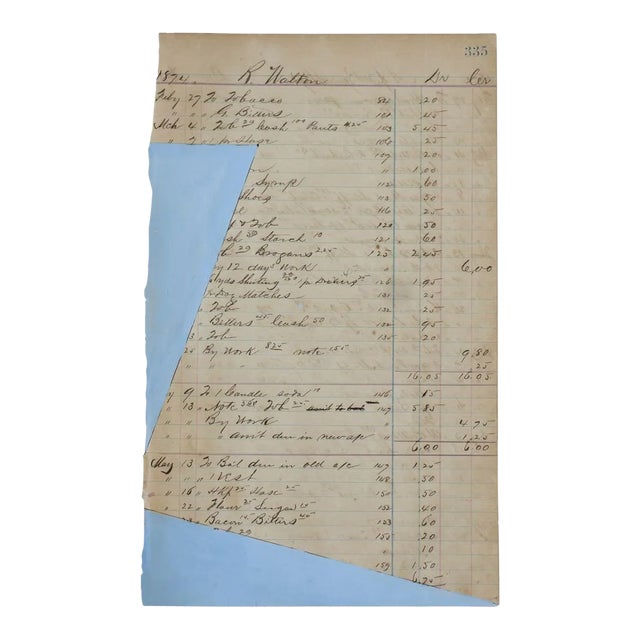 335
1874 R Walton Dr Cr
Feby 27 To Tobacco 82 .20
" " G. Bitters 101 .45
Mch 4 " Tob 20 Cash 100 Pants 425 103 5.45
" 7 " 1 pr Hose 106 25
109 20
" 1.00
Syrup 112 .60
Shoes 113 50
116 25
& Tob 120 50
Starch 10 121 60
29 Brogans 225 125 2.45
12 days Work 6.00
yds Shirting 126 1.95
Matches 131 25
" Tob 132 25
" Bitters 45 Cash 50 132 95
13 " Tob 135 20
25 By Work 825 note 155 9.80
" " " 25
16.05 16.05
9 To 1 soda 10 146 15
" 13 " Note 560 Tob 25 147 5.85
" " By Work 4.75
" " " am't due in new a/c 1.25
6.00 6.00
May 13 To Bal due in old a/c 147 1.25
" " " 1 Vest 148 .50
" 16 " Hkf 25 Hose 25 150 .50
" 22 " Flour 25 Sugar 15 152 .40
" Bacon 15 Bitters 45 60
20
" 10
159 1.50